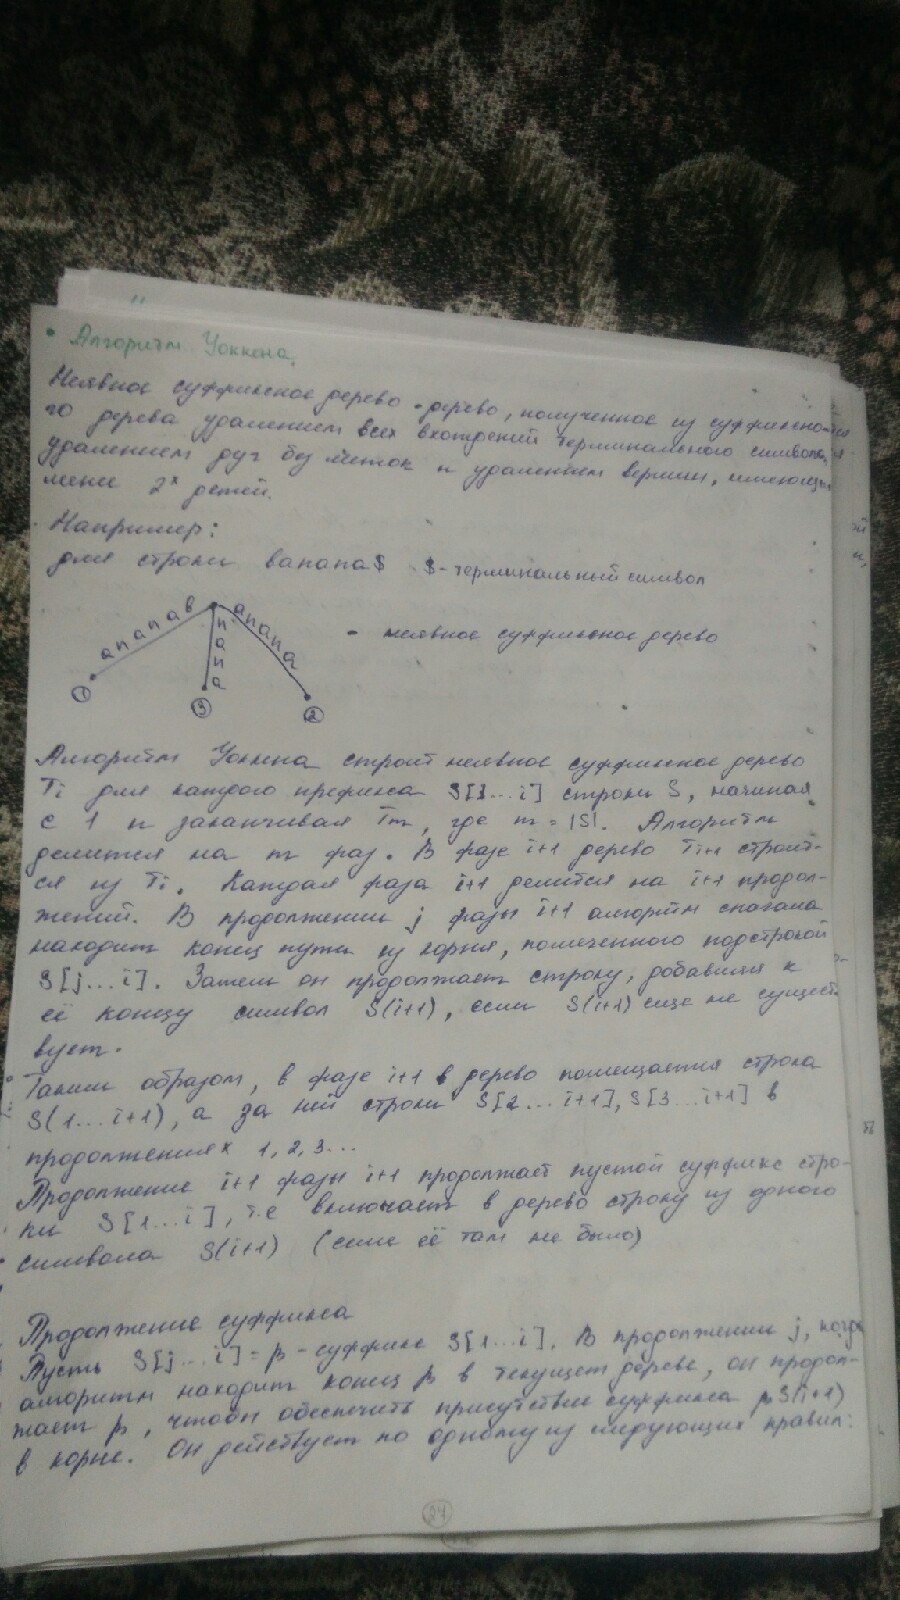 • Алгоритм Укконена.
Неявное суффиксное дерево - дерево, полученное из суффиксно-
го дерева удалением всех вхождений терминального символа,
удалением дуг без меток и удалением вершин, имеющих
менее 2х детей.
Например:
для строки banana$ $-терминальный символ
ananab
nana
anana
- неявное суффиксное дерево
1
3
2
Алгоритм Уккона строит неявное суффиксное дерево
Ti для каждого префикса S[1...i] строки S, начиная
с 1 и заканчивая Tm, где m = |S|. Алгоритм
делится на m фаз. В фазе i+1 дерево Ti+1 строит-
ся из Ti. Каждая фаза i+1 делится на i+1 продол-
жений. В продолжении j фазы i+1 алгоритм сначала
находит конец пути из корня, помеченного подстрокой
S[j...i]. Затем он продолжает строку, добавляя к
её концу символ S(i+1), если S(i+1) еще не сущест-
вует.
Таким образом, в фазе i+1 в дерево помещается строка
S(1...i+1), а за ней строки S[2...i+1], S[3...i+1] в
продолжениях 1, 2, 3...
Продолжение i+1 фазы i+1 продолжает пустой суффикс стро-
ки S[1...i], т.е включает в дерево строку из одного
символа S(i+1) (если её там не было)
Продолжение суффикса
Пусть S[j...i] = β - суффикс S[1...i]. В продолжении j, когда
алгоритм находит конец β в текущем дереве, он продол-
жает β, чтобы обеспечить присутствие суффикса βS(i+1)
в корне. Он действует по одному из следующих правил:
24